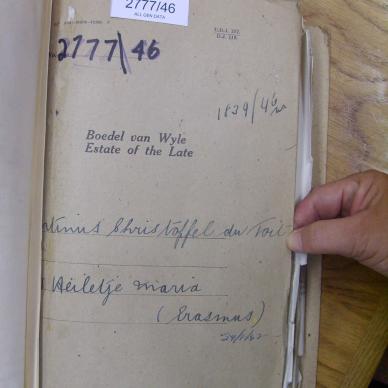 2777/46
ALL GEN DATA
U.D.J. 237.
D.J. 219.
2777/46
1839/46
Boedel van Wyle
Estate of the Late
tinus Christoffel du Toit
Heiletje Maria
(Erasmus)